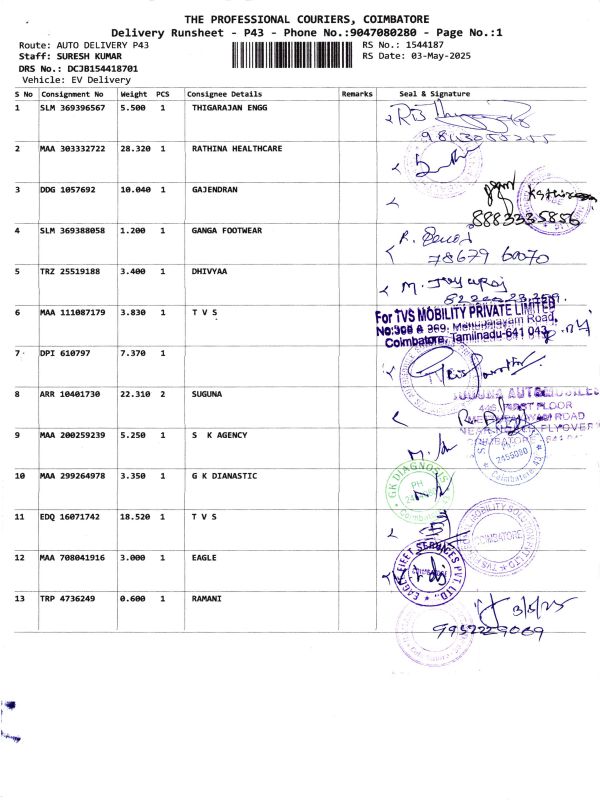 THE PROFESSIONAL COURIERS, COIMBATORE
Delivery Runsheet - P43 - Phone No.:9047080280 - Page No.:1
Route: AUTO DELIVERY P43 RS No.: 1544187
Staff: SURESH KUMAR RS Date: 03-May-2025
DRS No.: DCJB154418701
Vehicle: EV Delivery
S No Consignment No Weight PCS Consignee Details Remarks Seal & Signature
1 SLM 369396567 5.500 1 THIGARAJAN ENGG
2 MAA 303332722 28.320 1 RATHINA HEALTHCARE
3 DDG 1057692 10.040 1 GAJENDRAN
8883335856
4 SLM 369388058 1.200 1 GANGA FOOTWEAR
78679 60070
5 TRZ 25519188 3.400 1 DHIVYAA
6 MAA 111087179 3.830 1 T V S
For TVS MOBILITY PRIVATE LIMITED
Coimbatore, Tamilnadu-641 043
7 DPI 610797 7.370 1
8 ARR 10401730 22.310 2 SUGUNA
SUGUNA AUTOMOBILES
FIRST FLOOR
ROAD
FLYOVER
9 MAA 200259239 5.250 1 S K AGENCY
10 MAA 299264978 3.350 1 G K DIANASTIC
GK DIAGNOSIS
PH
11 EDQ 16071742 18.520 1 T V S
COIMBATORE
12 MAA 708041916 3.000 1 EAGLE
EAGLE FLEET SERVICES PVT. LTD.,
13 TRP 4736249 0.600 1 RAMANI
3/5/25
9952229069